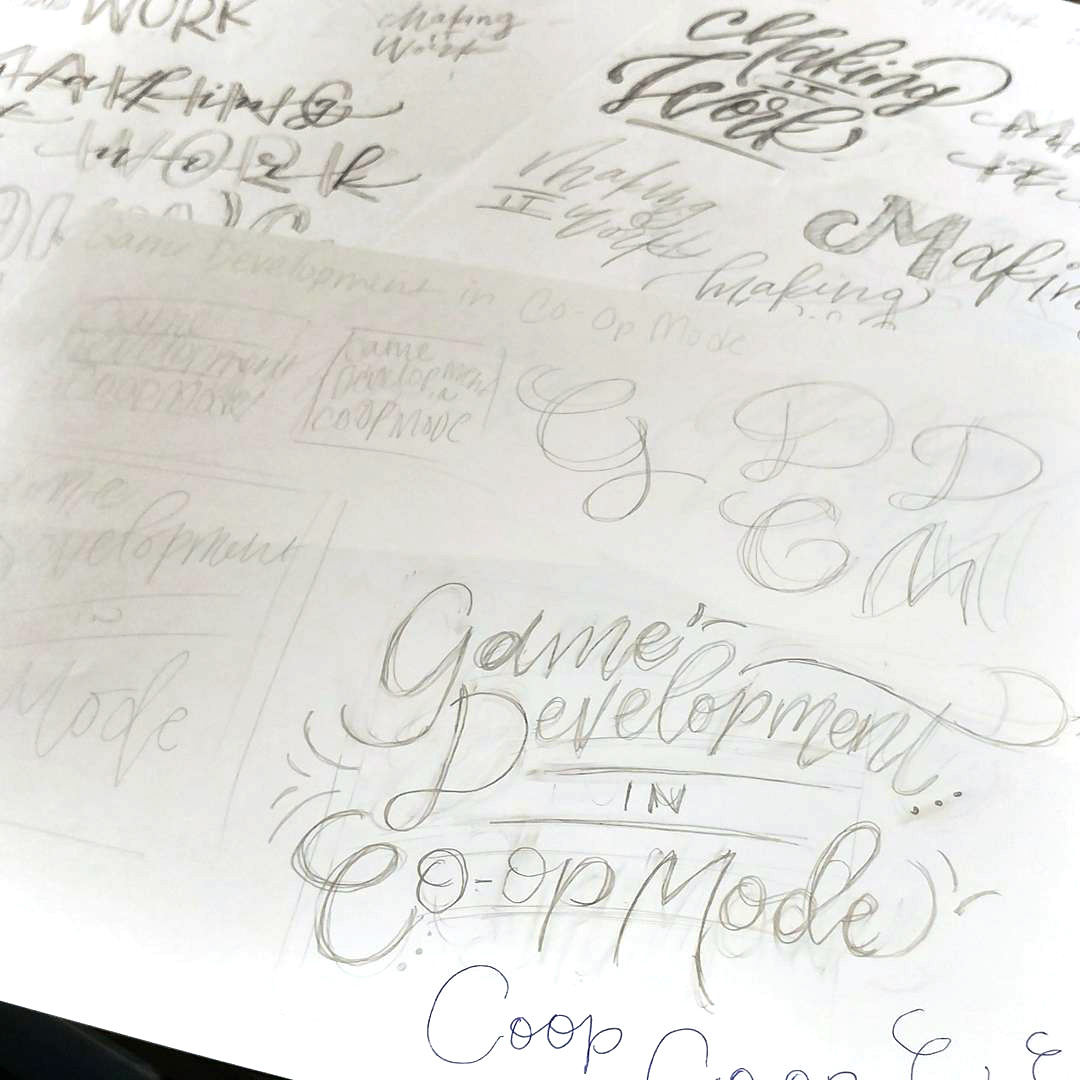 WORK
Making
Work
Making
IT
Work
MAKING
WORK
Making
IT
Work
Making
Making
Game Development in Co-Op Mode
Development
Coop Mode
Game
Development
IN
COOP MODE
G D D
C M
Development
IN
Mode
Game
Development
D
IN
Co-op Mode
Coop
Coop